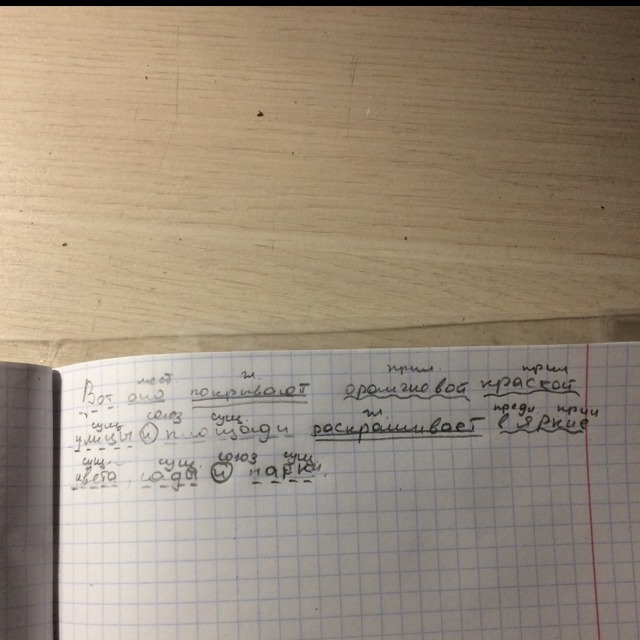 мест гл. прил. прил
Вот она покрывает оранжевой краской
сущ союз сущ гл. предл прил
улицы и площади раскрашивает в яркие
сущ. сущ. союз сущ
цвета, сады и парки.